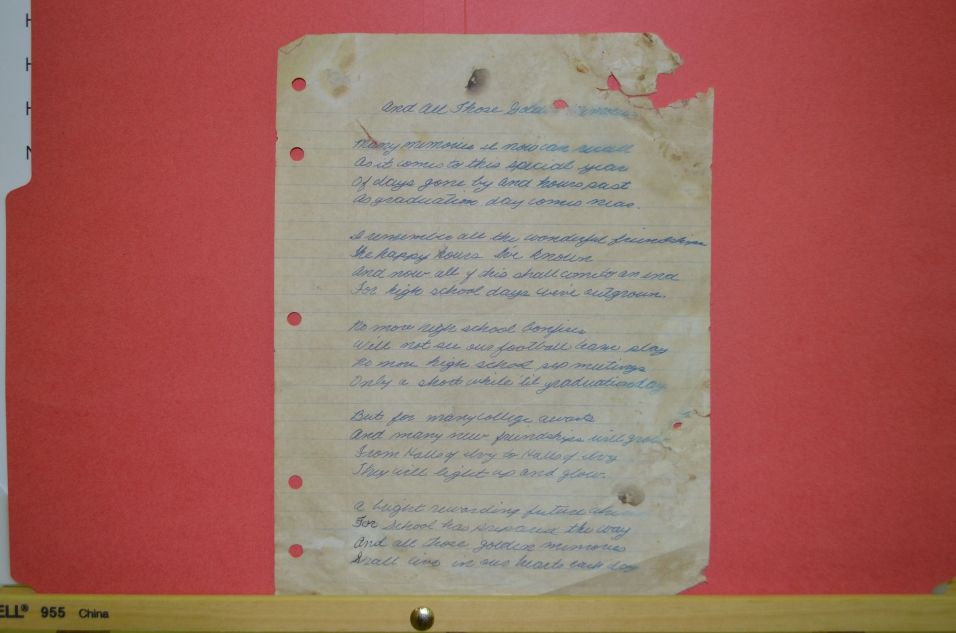 And All Those
Many memories I now can recall
As it comes to this special year
Of days gone by and hours past
As graduation day comes near.
I remember all the wonderful friendships
The happy hours I've known
And now all of this shall come to an end
For high school days we've outgrown.
No more high school bonfires
Will not see our football team play
No more high school meetings
Only a short while til graduation day
But for many college awaits
And many new friendships will grow
From Halls of Ivy to Halls of Ivy
They will light up and glow.
A bright rewarding future
For school has prepared the way
And all those golden memories
Shall live in our hearts each day
ELL® 955 China
H
H
H
N